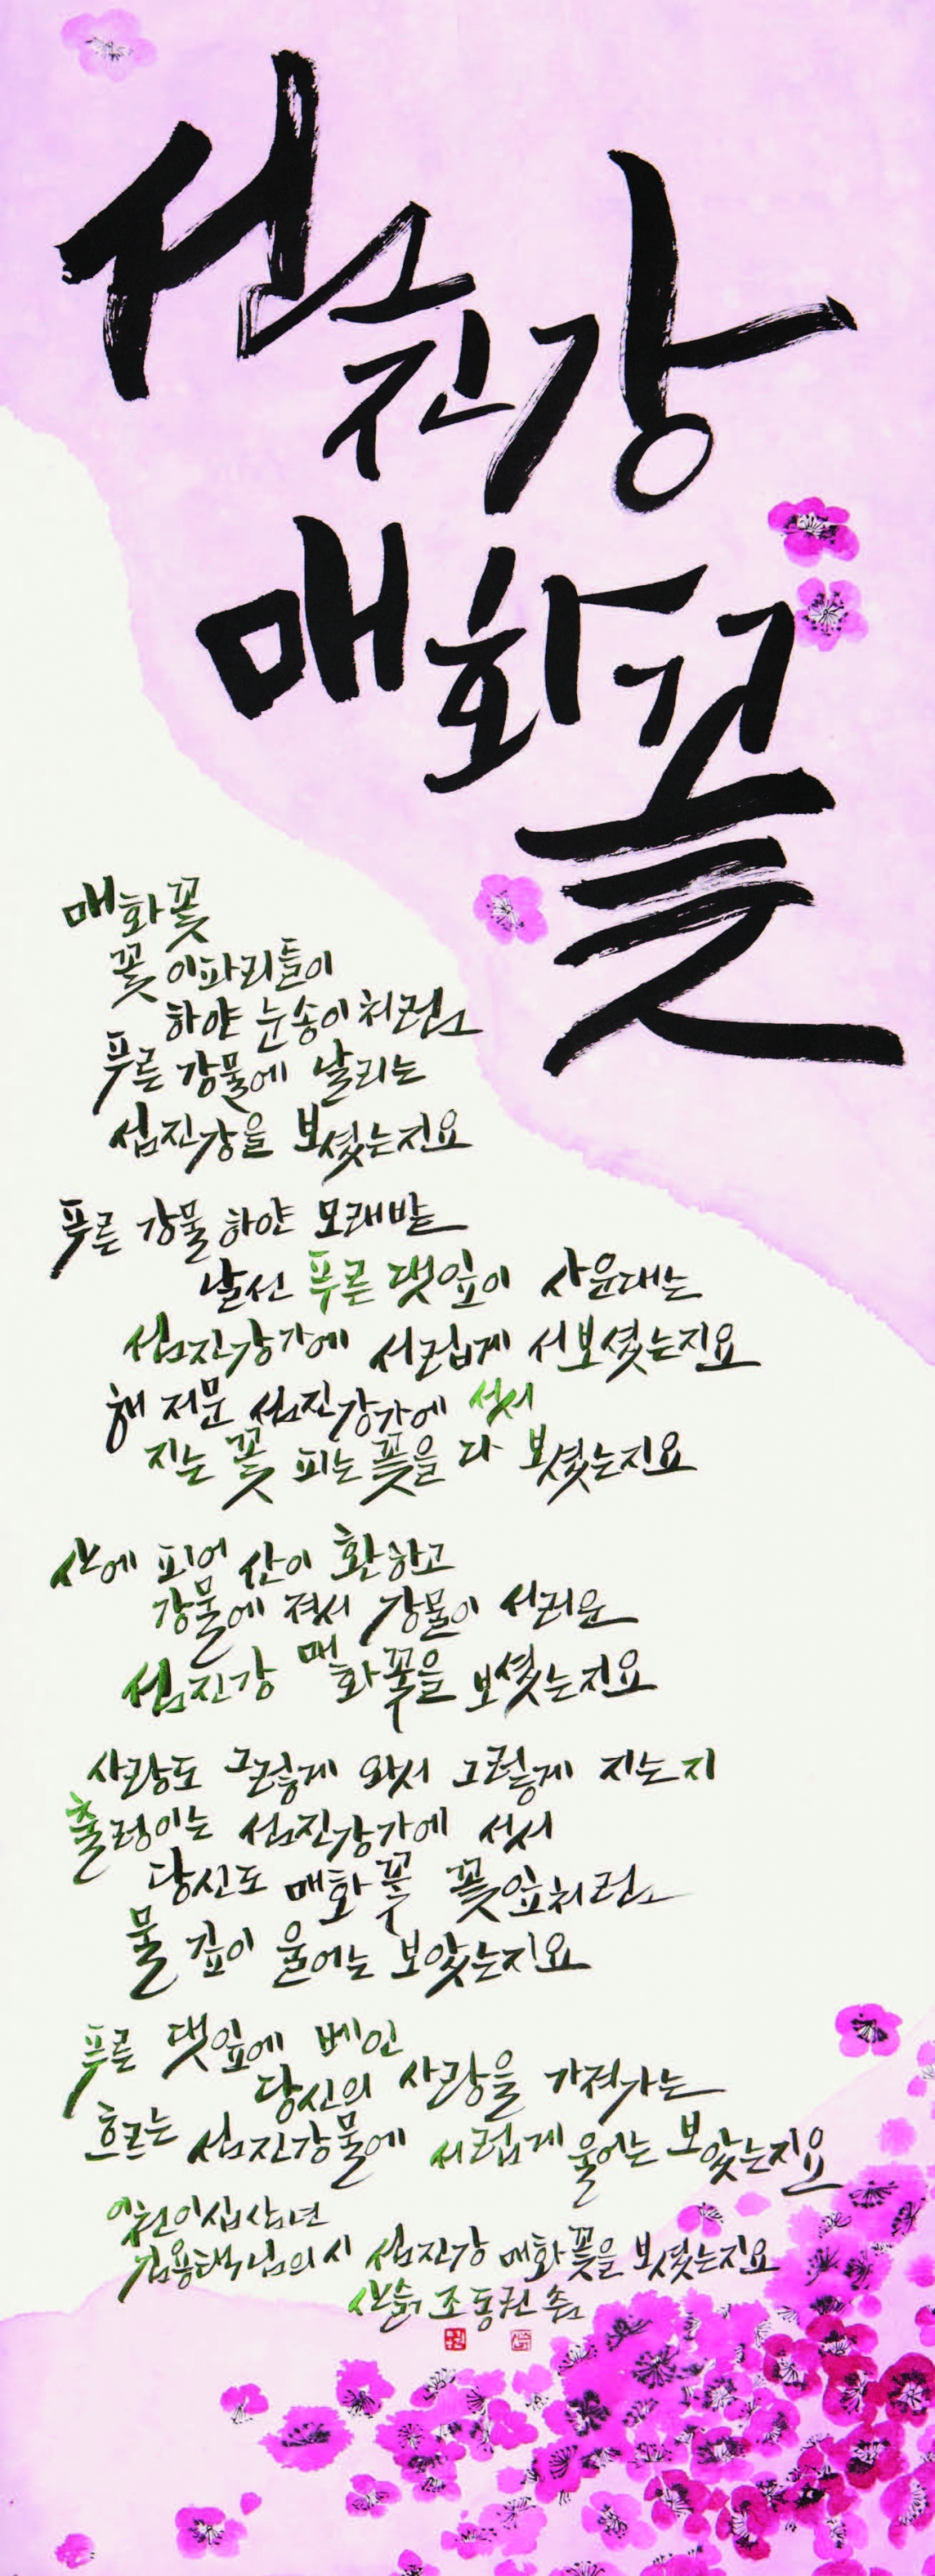 섬진강
매화꽃
매화꽃
꽃 이파리들이
하얀 눈송이처럼
푸른 강물에 날리는
섬진강을 보셨는지요
푸른 강물 하얀 모래밭
날선 푸른 댓잎이 사운대는
섬진강가에 서럽게 서보셨는지요
해 저문 섬진강가에 서서
지는 꽃 피는 꽃을 다 보셨는지요
산에 피어 산이 환하고
강물에 져서 강물이 서러운
섬진강 매화꽃을 보셨는지요
사랑도 그렇게 와서 그렇게 지는지
출렁이는 섬진강가에 서서
당신도 매화꽃 꽃잎처럼
물 깊이 울어는 보았는지요
푸른 댓잎에 베인
당신의 사랑을 가져가는
흐르는 섬진강물에 서럽게 울어는 보았는지요
이천이십삼년
김용택님의 시 섬진강 매화꽃을 보셨는지요
조동권 씀